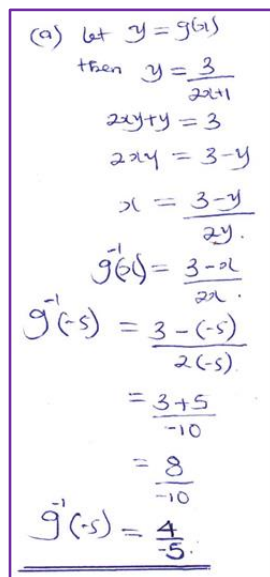 (a) Let y = g(x)
then y = 3/(2x+1)
2xy+y = 3
2xy = 3-y
x = (3-y)/(2y).
g⁻¹(x) = (3-x)/(2x).
g⁻¹(-5) = (3-(-5))/(2(-5))
= (3+5)/(-10)
= 8/(-10)
g⁻¹(-5) = 4/(-5).